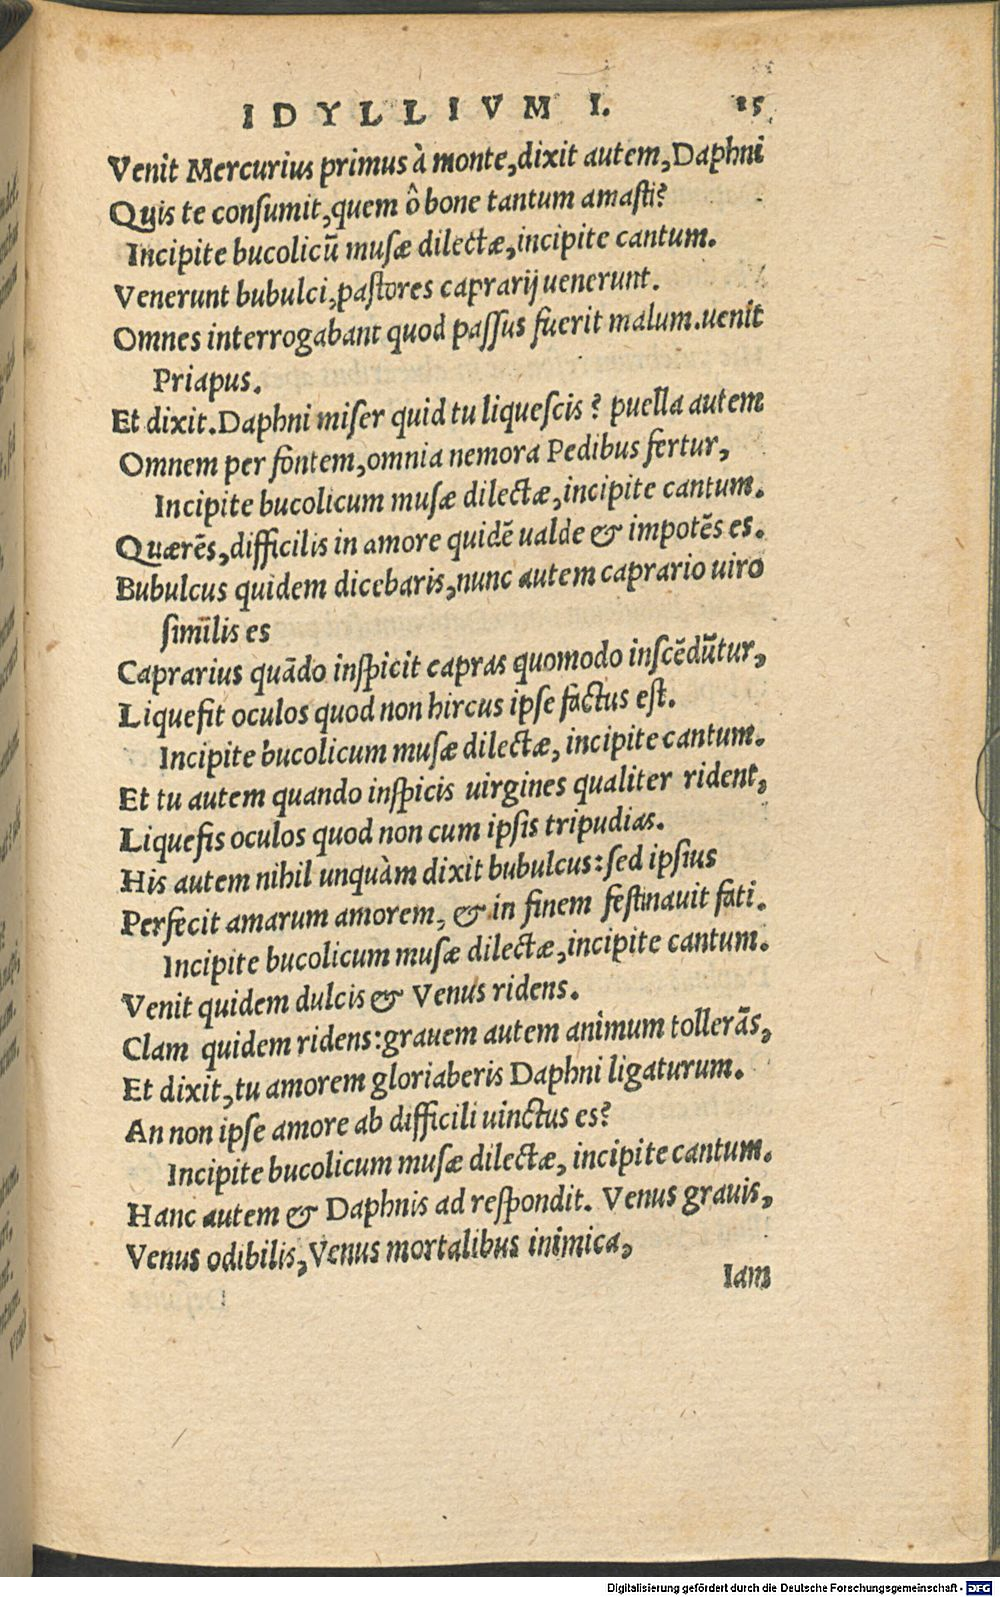 IDYLLIVM I. 15
Venit Mercurius primus à monte, dixit autem, Daphni
Quis te consumit, quem ô bone tantum amasti?
Incipite bucolicū musæ dilectæ, incipite cantum.
Venerunt bubulci, pastores caprarij uenerunt.
Omnes interrogabant quod passus fuerit malum. uenit
Priapus.
Et dixit. Daphni miser quid tu liquescis? puella autem
Omnem per fontem, omnia nemora Pedibus fertur,
Incipite bucolicum musæ dilectæ, incipite cantum.
Quærēs, difficilis in amore quidē ualde & impotēs es.
Bubulcus quidem dicebaris, nunc autem caprario uiro
similis es
Caprarius quādo inspicit capras quomodo inscēdūtur,
Liquefit oculos quod non hircus ipse factus est.
Incipite bucolicum musæ dilectæ, incipite cantum.
Et tu autem quando inspicis uirgines qualiter rident,
Liquefis oculos quod non cum ipsis tripudias.
His autem nihil unquàm dixit bubulcus: sed ipsius
Perfecit amarum amorem, & in finem festinauit fati.
Incipite bucolicum musæ dilectæ, incipite cantum.
Venit quidem dulcis & Venus ridens.
Clam quidem ridens: grauem autem animum tollerās,
Et dixit, tu amorem gloriaberis Daphni ligaturum.
An non ipse amore ab difficili uinctus es?
Incipite bucolicum musæ dilectæ, incipite cantum.
Hanc autem & Daphnis ad respondit. Venus grauis,
Venus odibilis, Venus mortalibus inimica,
Iam
Digitalisierung gefördert durch die Deutsche Forschungsgemeinschaft - DFG